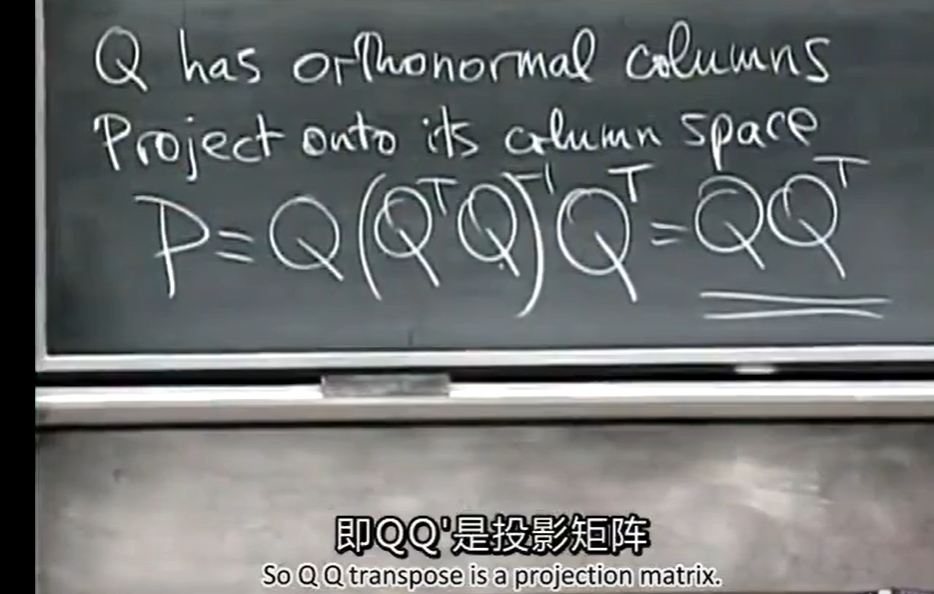 Q has orthonormal columns
Project onto its column space
P = Q(QᵀQ)⁻¹Qᵀ = QQᵀ
即QQ'是投影矩阵
So Q Q transpose is a projection matrix.